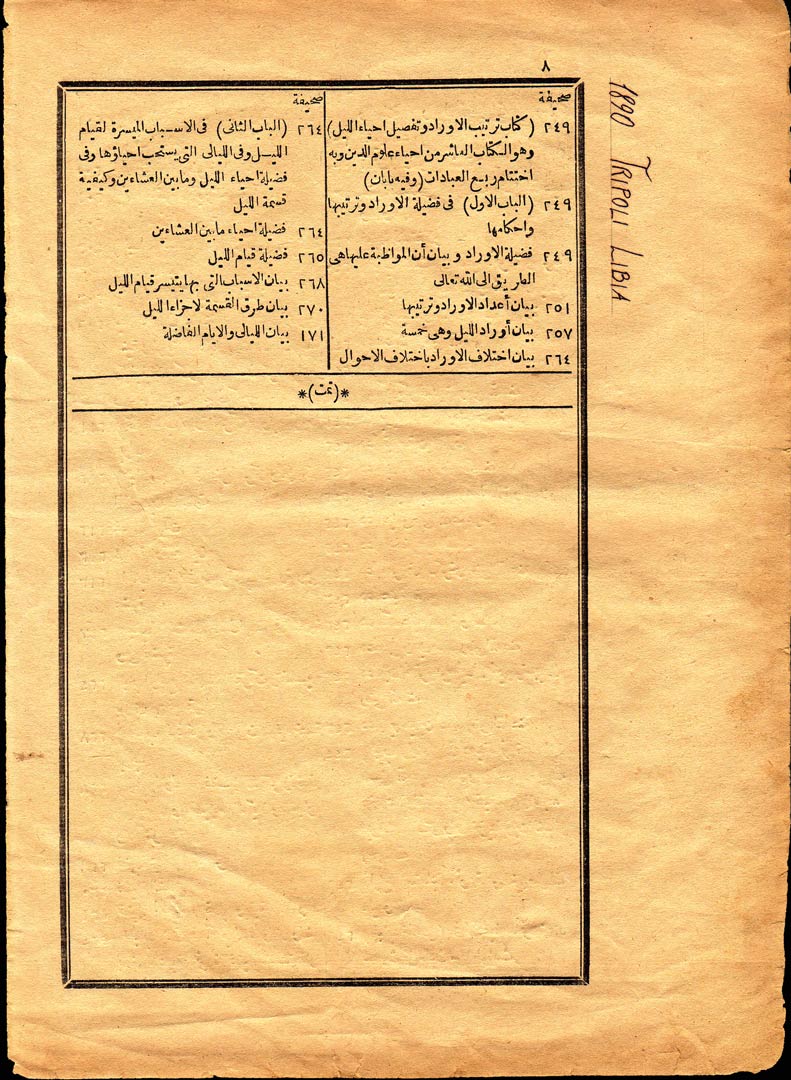 ٨
صحيفة
٢٤٩ (كتاب ترتيب الاوراد وتفصيل احياء الليل)
وهو الكتاب العاشر من احياء علوم الدين وبه
اختتام ربع العبادات (وفيه بابان)
٢٤٩ (الباب الاول) فى فضيلة الاوراد وترتيبها
واحكامها
٢٤٩ فضيلة الاوراد وبيان أن المواظبة عليها هى
الطريق الى الله تعالى
٢٥١ بيان أعداد الاوراد وترتيبها
٢٥٧ بيان أوراد الليل وهى خمسة
٢٦٤ بيان اختلاف الاوراد باختلاف الاحوال
صحيفة
٢٦٤ (الباب الثانى) فى الاسباب الميسرة لقيام
الليل وفى الليالى التى يستحب احياؤها وفى
فضيلة احياء الليل وما بين العشاءين وكيفية
قسمة الليل
٢٦٤ فضيلة احياء ما بين العشاءين
٢٦٥ فضيلة قيام الليل
٢٦٨ بيان الاسباب التى بها يتيسر قيام الليل
٢٧٠ بيان طرق القسمة لاجزاء الليل
١٧١ بيان الليالى والايام الفاضلة
*(تمت)*
1890 TRIPOLI LIBIA